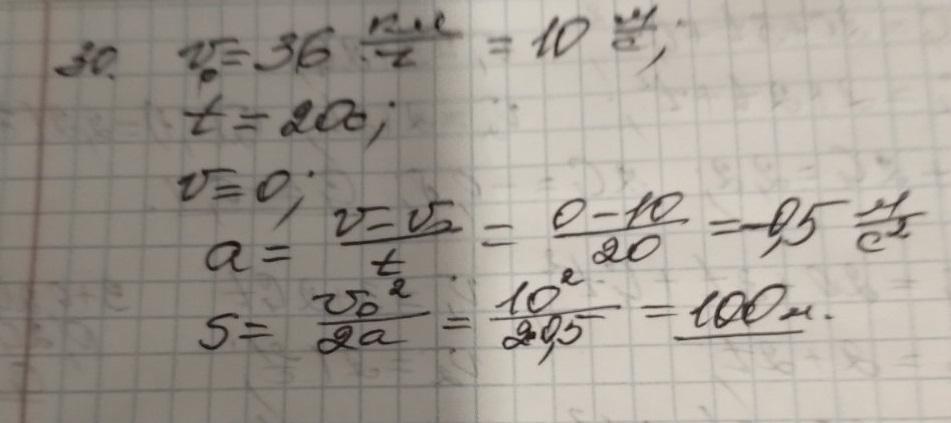 30. v₀ = 36 км/ч = 10 м/с;
t = 20с;
v = 0;
a = (v - v₀)/t = (0 - 10)/20 = -0,5 м/с²
S = v₀²/2a = 10²/2·0,5 = 100м.